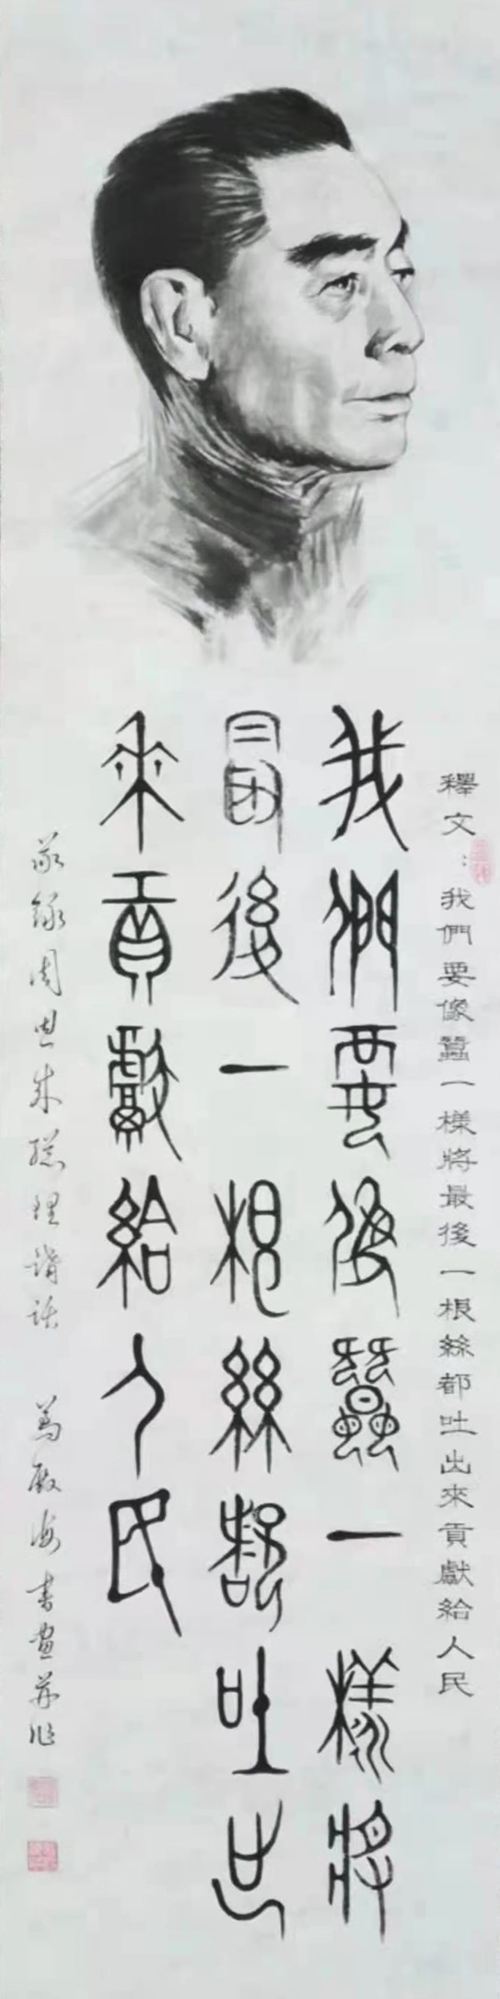 釋文：我們要像蠶一樣將最後一根絲都吐出來貢獻給人民
我們要像蠶一樣將
最後一根絲都吐出
來貢獻給人民
敬錄周恩来總理講話 書畫并